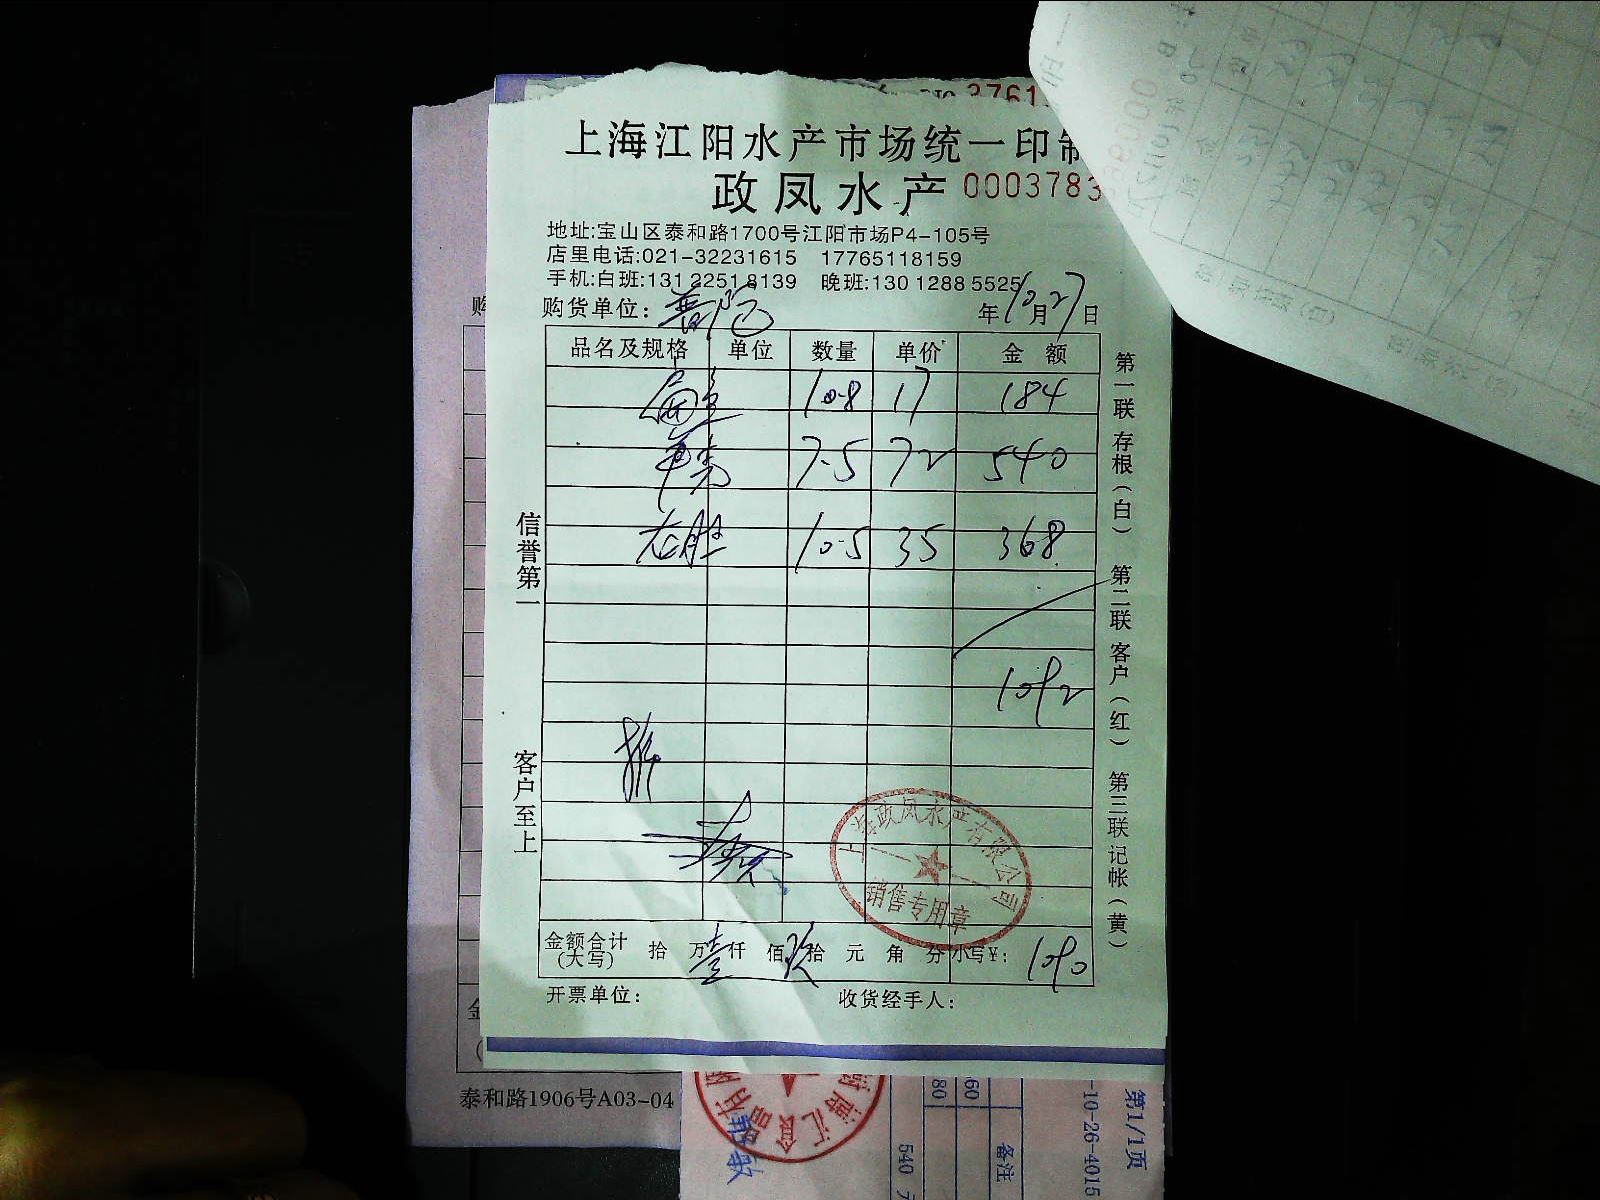 3761
上海江阳水产市场统一印制
政凤水产 0003783
地址:宝山区泰和路1700号江阳市场P4-105号
店里电话:021-32231615 17765118159
手机:白班:131 2251 8139 晚班:130 1288 5525
购货单位: 年10月27日
品名及规格 单位 数量 单价 金额
10.8 17 184
7.5 72 540
龙胆 10.5 35 368
1092
信誉第一
客户至上
第一联存根(白) 第二联客户(红) 第三联记帐(黄)
上海政凤水产有限公司
销售专用章
金额合计(大写) 拾 万壹仟 佰玖拾 元 角 分 小写¥: 1090
开票单位: 收货经手人:
购
金
泰和路1906号A03-04
60
80
540
备注
-10-26-4015
第1/1页